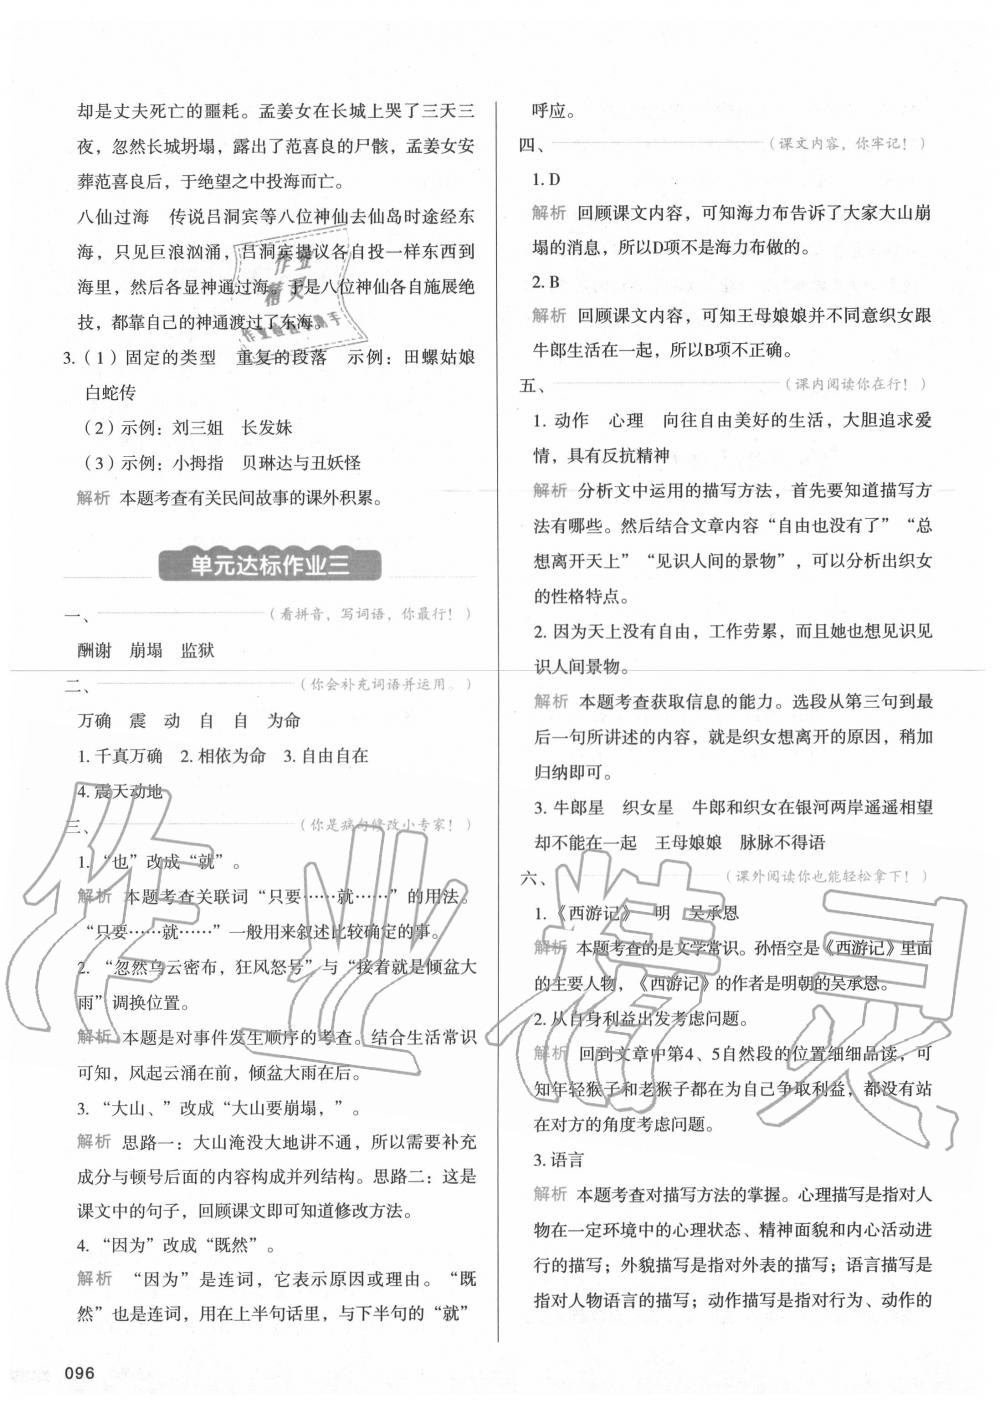 却是丈夫死亡的噩耗。孟姜女在长城上哭了三天三
夜，忽然长城坍塌，露出了范喜良的尸骸，孟姜女安
葬范喜良后，于绝望之中投海而亡。
八仙过海　传说吕洞宾等八位神仙去仙岛时途经东
海，只见巨浪汹涌，吕洞宾提议各自投一样东西到
海里，然后各显神通过海。于是八位神仙各自施展绝
技，都靠自己的神通渡过了东海。
3.（1）固定的类型　重复的段落　示例：田螺姑娘
白蛇传
（2）示例：刘三姐　长发妹
（3）示例：小拇指　贝琳达与丑妖怪
解析　本题考查有关民间故事的课外积累。
单元达标作业三
一、（看拼音，写词语，你最行！）
酬谢　崩塌　监狱
二、（你会补充词语并运用。）
万确　震　动　自　自　为命
1. 千真万确　2. 相依为命　3. 自由自在
4. 震天动地
三、（你是病句修改小专家！）
1. “也”改成“就”。
解析　本题考查关联词“只要……就……”的用法。
“只要……就……”一般用来叙述比较确定的事。
2. “忽然乌云密布，狂风怒号”与“接着就是倾盆大
雨”调换位置。
解析　本题是对事件发生顺序的考查。结合生活常识
可知，风起云涌在前，倾盆大雨在后。
3. “大山、”改成“大山要崩塌，”。
解析　思路一：大山淹没大地讲不通，所以需要补充
成分与顿号后面的内容构成并列结构。思路二：这是
课文中的句子，回顾课文即可知道修改方法。
4. “因为”改成“既然”。
解析　“因为”是连词，它表示原因或理由。“既
然”也是连词，用在上半句话里，与下半句的“就”
096
呼应。
四、（课文内容，你牢记！）
1. D
解析　回顾课文内容，可知海力布告诉了大家大山崩
塌的消息，所以D项不是海力布做的。
2. B
解析　回顾课文内容，可知王母娘娘并不同意织女跟
牛郎生活在一起，所以B项不正确。
五、（课内阅读你在行！）
1. 动作　心理　向往自由美好的生活，大胆追求爱
情，具有反抗精神
解析　分析文中运用的描写方法，首先要知道描写方
法有哪些。然后结合文章内容“自由也没有了”“总
想离开天上”“见识人间的景物”，可以分析出织女
的性格特点。
2. 因为天上没有自由，工作劳累，而且她也想见识见
识人间景物。
解析　本题考查获取信息的能力。选段从第三句到最
后一句所讲述的内容，就是织女想离开的原因，稍加
归纳即可。
3. 牛郎星　织女星　牛郎和织女在银河两岸遥遥相望
却不能在一起　王母娘娘　脉脉不得语
六、（课外阅读你也能轻松拿下！）
1.《西游记》　明　吴承恩
解析　本题考查的是文学常识。孙悟空是《西游记》里面
的主要人物，《西游记》的作者是明朝的吴承恩。
2. 从自身利益出发考虑问题。
解析　回到文章中第4、5自然段的位置细细品读，可
知年轻猴子和老猴子都在为自己争取利益，都没有站
在对方的角度考虑问题。
3. 语言
解析　本题考查对描写方法的掌握。心理描写是指对人
物在一定环境中的心理状态、精神面貌和内心活动进
行的描写；外貌描写是指对外表的描写；语言描写是
指对人物语言的描写；动作描写是指对行为、动作的
作业精灵
作业
精灵